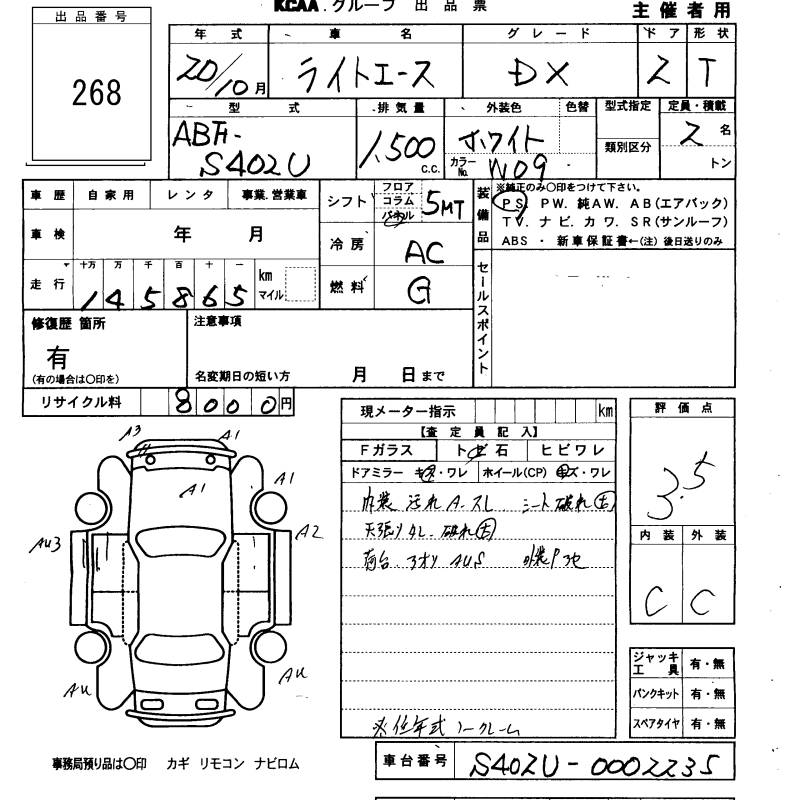 KCAA.グループ 出品票 主催者用
出品番号
268
年式 車名 グレード ドア 形状
20/10月 ライトエース DX 2 T
型式 排気量 外装色 色替 型式指定 定員・積載
ABF-
S402U 1,500 c.c. ホワイト 類別区分 2名
カラーNo. W09 トン
車歴 自家用 レンタ 事業.営業車
車検 年 月
走行 十万 万 千 百 十 一
145865 km マイル
シフト フロア コラム パネル 5MT
冷房 AC
燃料 G
装備品
※純正のみ〇印をつけて下さい。
PS. PW. 純AW. AB(エアバック)
TV. ナビ. カワ. SR(サンルーフ)
ABS ・ 新車保証書←(注) 後日送りのみ
セールスポイント
修復歴 箇所
有
(有の場合は〇印を)
注意事項
名変期日の短い方 月 日まで
リサイクル料 8000円
現メーター指示 km
【査定員記入】
Fガラス トビ石 ヒビワレ
ドアミラー キズ・ワレ ホイール(CP) キズ・ワレ
内装 汚れ A.スレ シート破れ 大
天張り 破れ 大
荷台 アオリ AU5
※低年式 ノークレーム
評価点
3.5
内装 外装
C C
A3 A1
A1 A1
AU3 A2
AU AU
ジャッキ工具 有・無
パンクキット 有・無
スペアタイヤ 有・無
事務局預り品は〇印 カギ リモコン ナビロム
車台番号 S402U-0002235